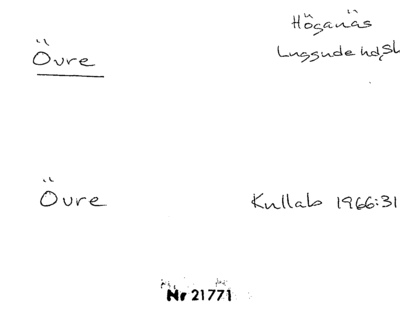 Höganäs
Övre
Luggude hd, Sk
Övre
Kullab 1966:31
Nr 21771